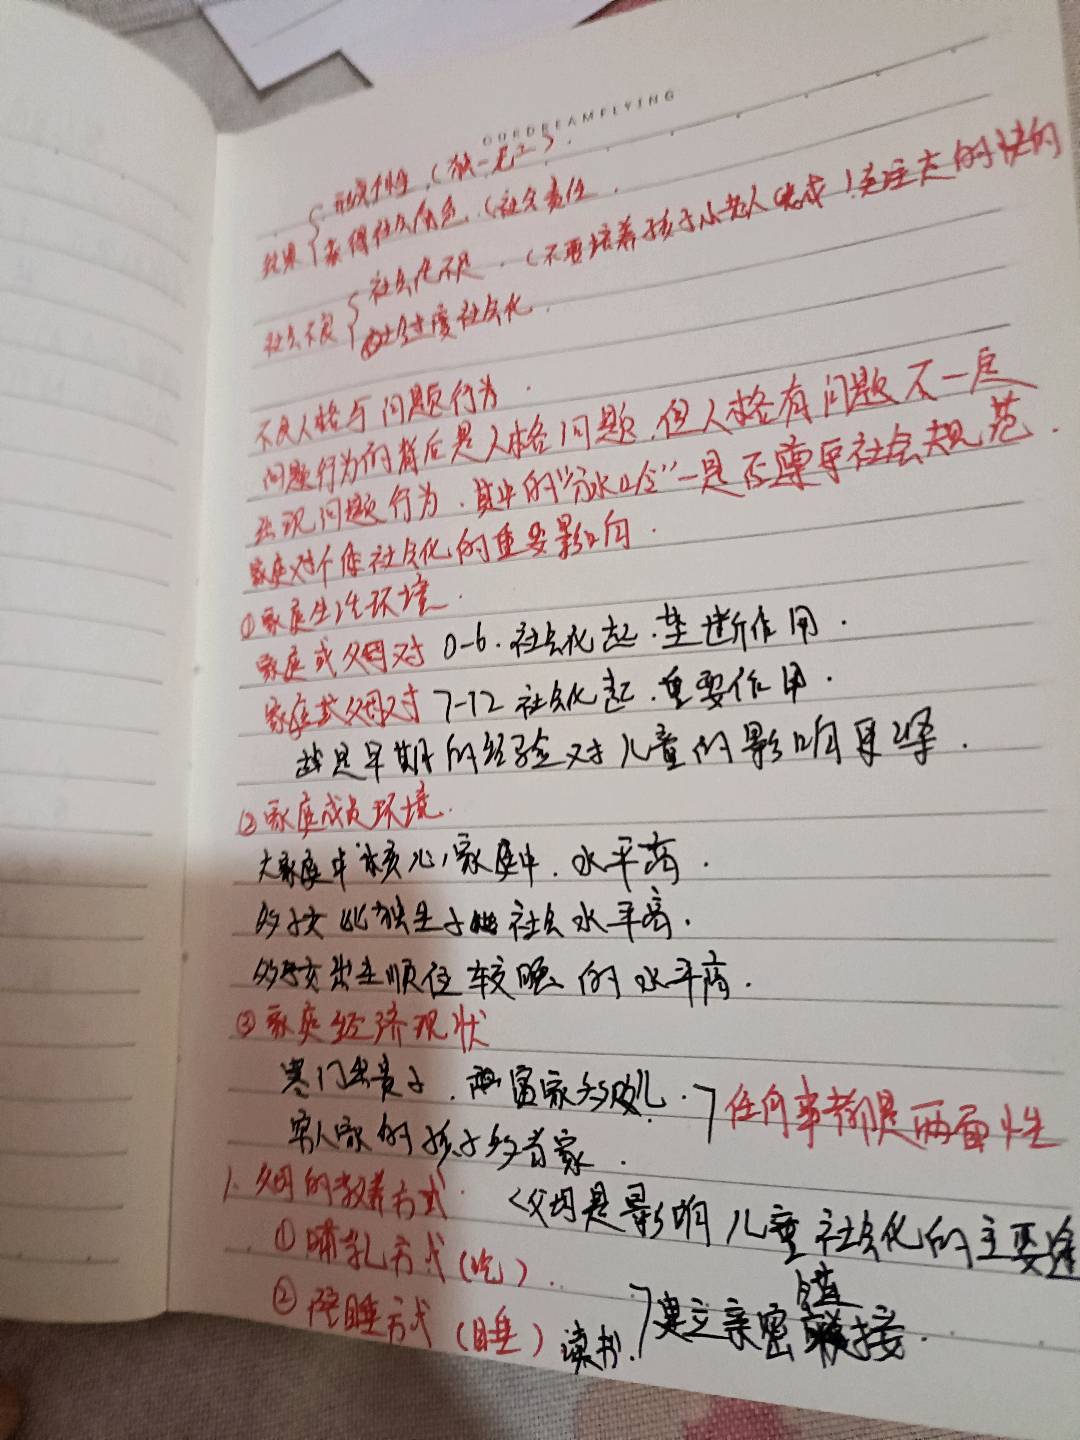 OURDREAMFLYING
结果 形成个性.(独一无二).
获得社会角色.(社会责任.
社会不良 社会化不足.(不要培养孩子小老人 完成!
过度社会化.
不良人格与问题行为.
问题行为的背后是人格问题,但人格有问题不一定
出现问题行为.其中的"分水岭"一是否遵守社会规范.
家庭对个体社会化的重要影响.
①家庭生活环境.
家庭或父母对 0-6.社会化起.垄断作用.
家庭或父母对 7-12 社会化起.重要作用.
越是早期的经验对儿童的影响更
②家庭成员环境.
大家庭中 核心家庭中.水平高.
多子女比独生子 社会水平高.
多子女出生顺位较晚的水平高.
③家庭经济现状
寒门出贵子. 富家多败儿. 任何事都是两面性
穷人家的孩子多当家.
1.父母的教养方式. <父母是影响儿童社会化的主要途
①哺乳方式(吃)..
②陪睡方式(睡)读书. 建立亲密 接.